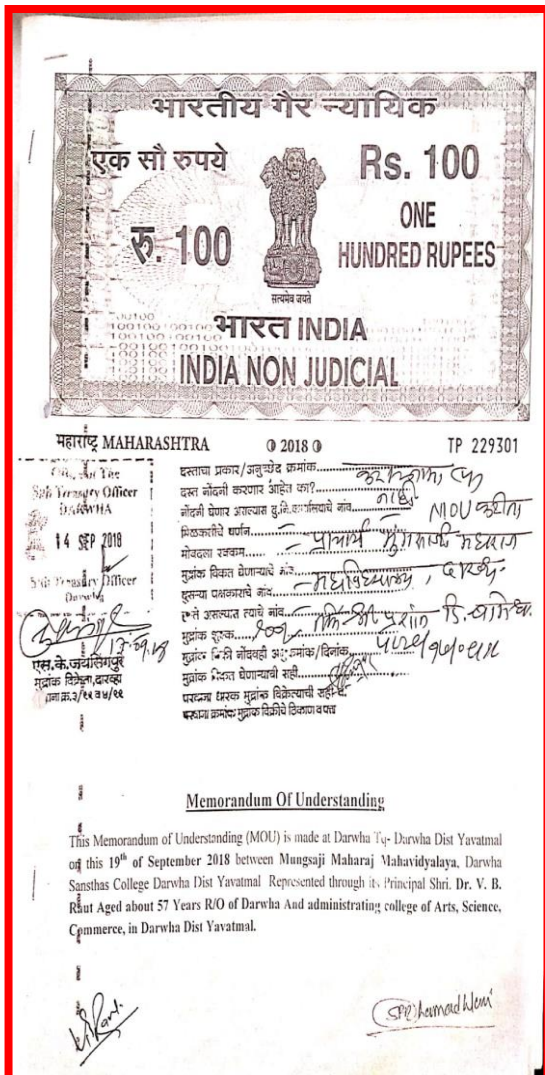 भारतीय गैर न्यायिक
एक सौ रुपये
Rs. 100
रु. 100
ONE
HUNDRED RUPEES
सत्यमेव जयते
भारत INDIA
INDIA NON JUDICIAL
महाराष्ट्र MAHARASHTRA
2018
TP 229301
The
Sub Treasury Officer
DARWHA
14 SEP 2018
Sub Treasury Officer
Darwha
एस.के.जयसिंगपुरे
मुद्रांक विक्रेता,दारव्हा
दस्ताचा प्रकार/अनुच्छेद क्रमांक
दस्त नोंदनी करणार आहेत का?
नोंदनी घेणार असल्यास दु.नि.कार्यालयाचे नांव
MOU करीता
मिळकतीचे वर्णन
प्राचार्य मुंगसाजी महाराज
मोबदला रक्कम
मुद्रांक विकत घेणाऱ्याचे नांव
महाविद्यालय, दारव्हा
दुसऱ्या पक्षकाराचे नाव
हस्ते असल्यास त्याचे नांव
मुद्रांक शुल्क
मुद्रांक विक्री नोंदवही अनु.क्रमांक/दिनांक
मुद्रांक विकत घेणाऱ्याची सही
परवाना धारक मुद्रांक विक्रेत्याची सही
परवाना क्रमांक मुद्रांक विक्रीचे ठिकाण व पत्ता
Memorandum Of Understanding
This Memorandum of Understanding (MOU) is made at Darwha Tq- Darwha Dist Yavatmal
on this 19th of September 2018 between Mungsaji Maharaj Mahavidyalaya, Darwha
Sansthas College Darwha Dist Yavatmal Represented through its Principal Shri. Dr. V. B.
Raut Aged about 57 Years R/O of Darwha And administrating college of Arts, Science,
Commerce, in Darwha Dist Yavatmal.